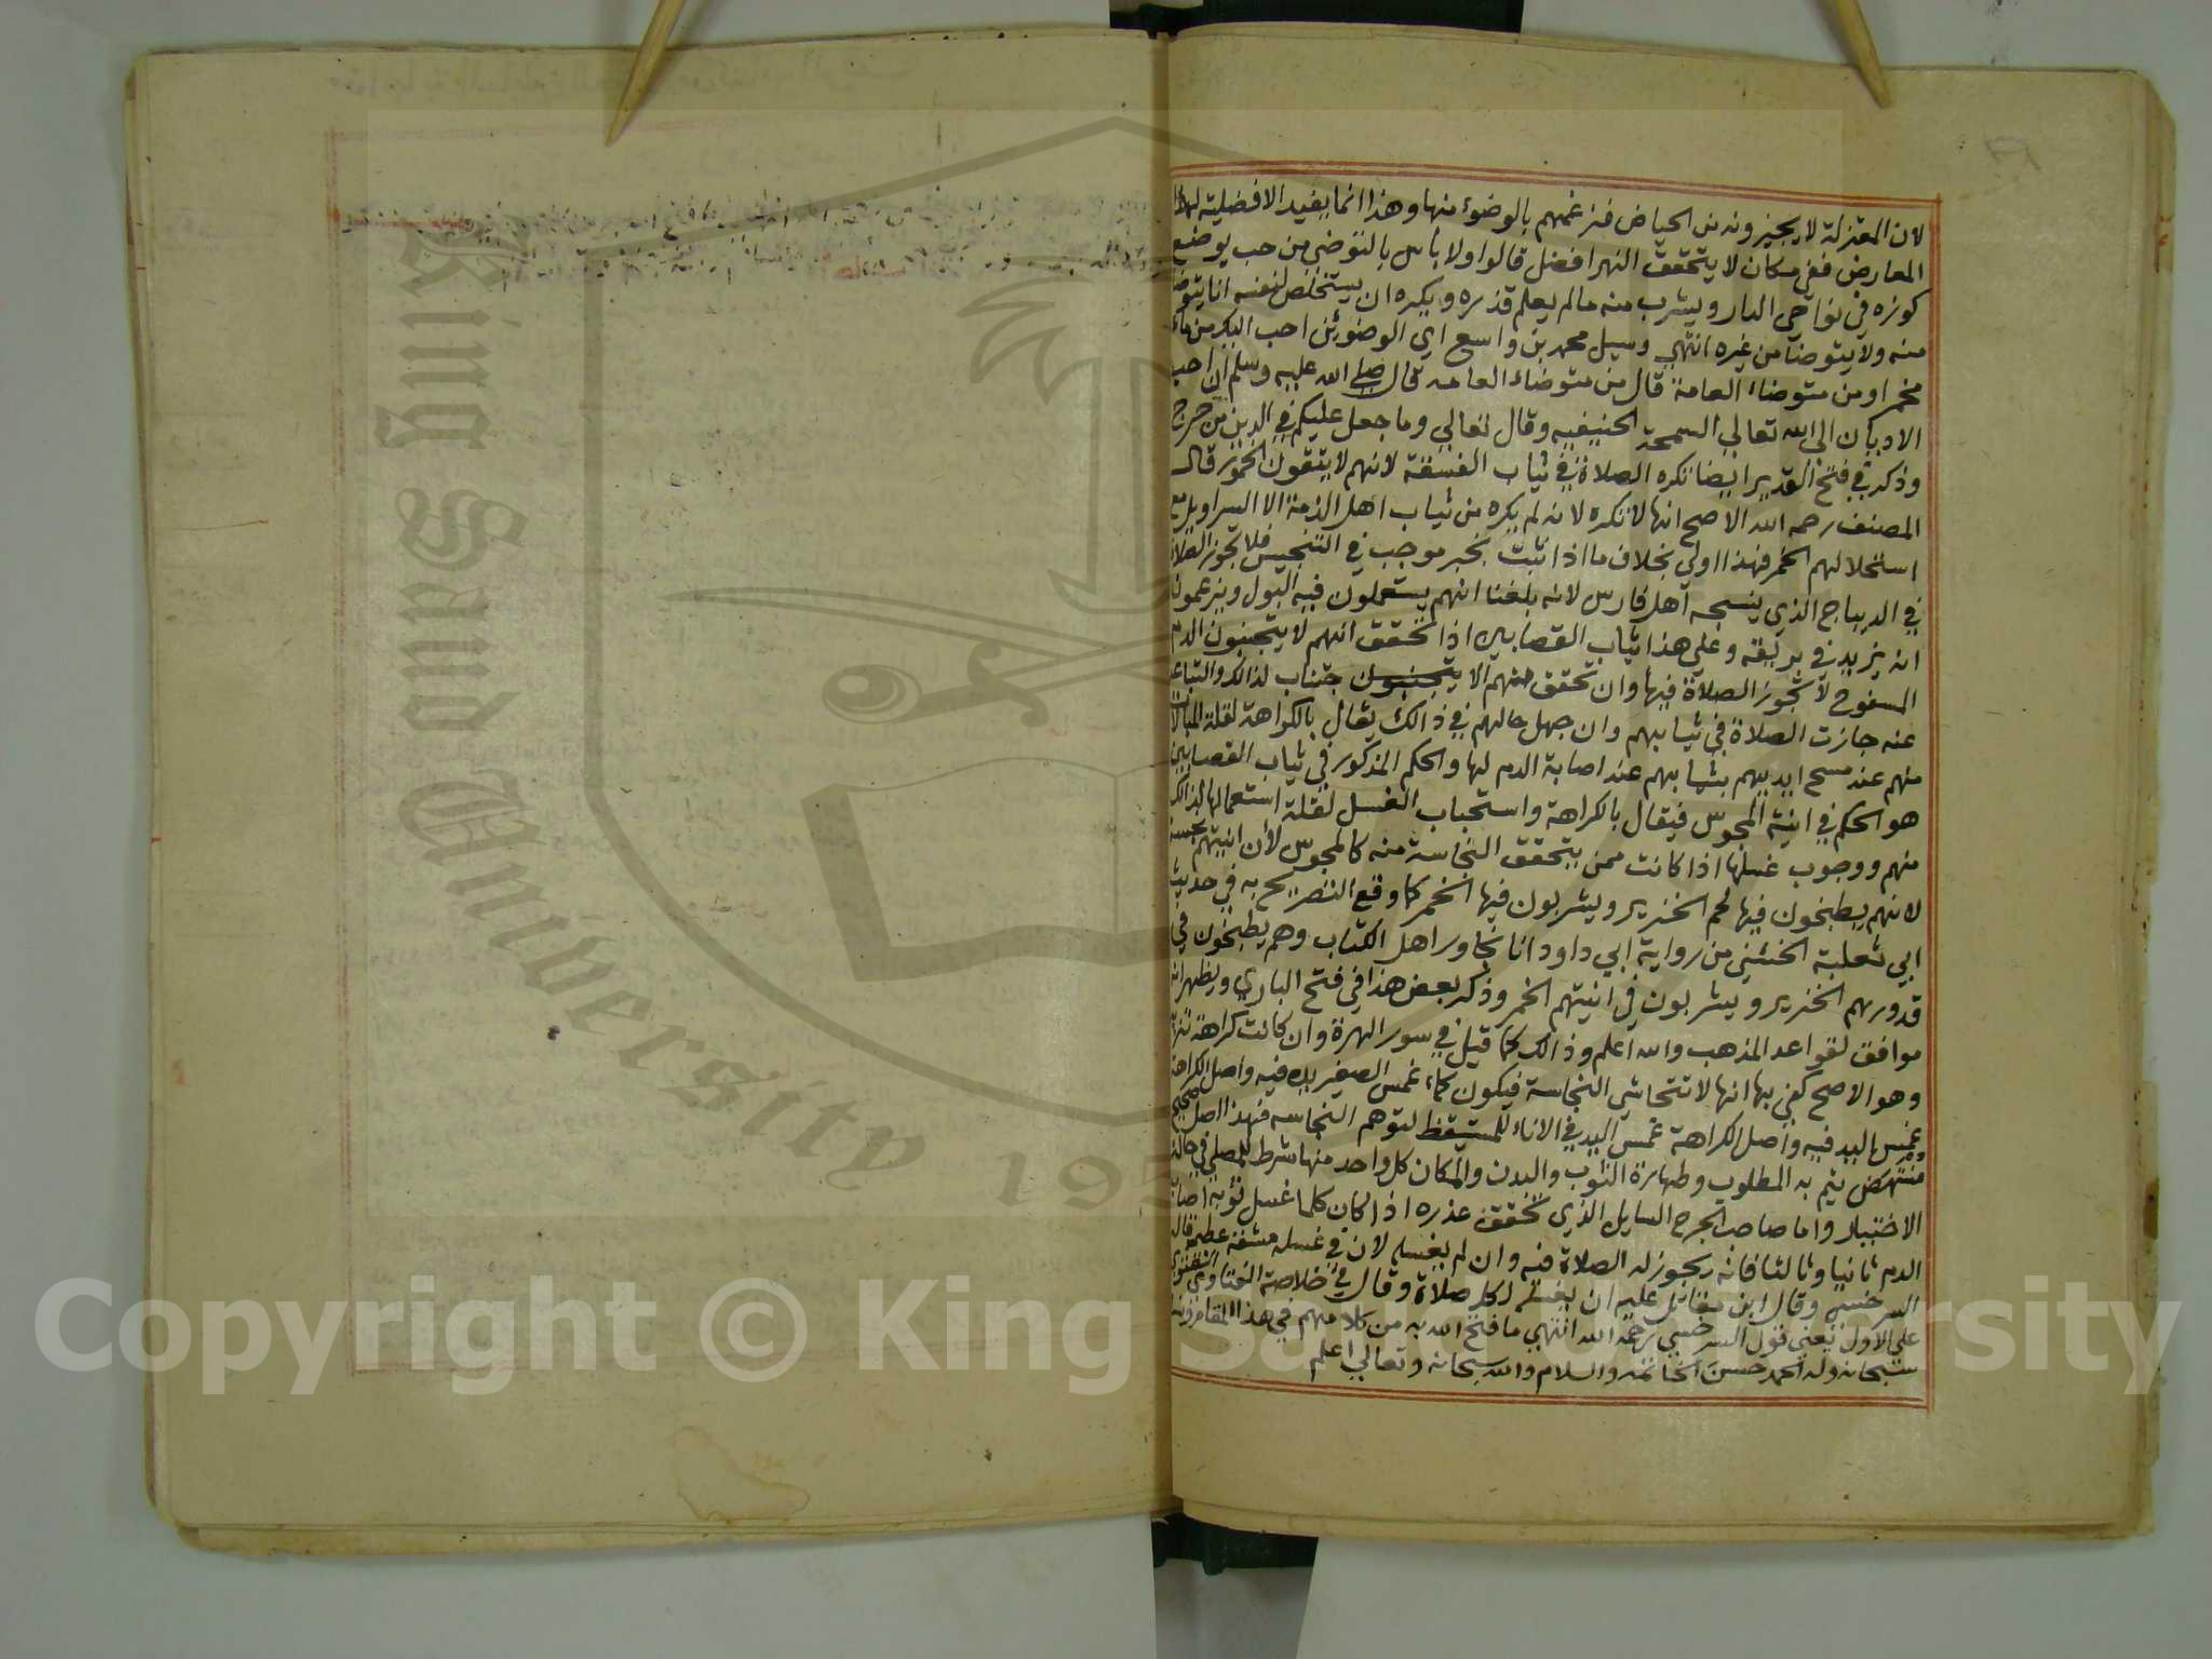 لان المعتزلة لا يجيزونه من الحياض فنرغمهم بالوضوء منها وهذا انما يفيد الافضلية لهذا
المعارض ففي مكان لا يتحقق النهر افضل قالوا ولا باس بالتوضي من حب يوضع
كوزه في نواحي الدار ويشرب منه مالم يعلم قذره ويكره ان يستخلص لنفسه انا يتوضا
منه ولا يتوضا من غيره انتهي وسيل محمد بن واسع اي الوضوئين احب اليك من ماء
مخمر او من متوضاء العامة قال من متوضاء العامه قال صلي الله عليه وسلم ان احب
الاديان الي الله تعالي السمحة الحنيفيه وقال تعالي وما جعل عليكم في الدين من حرج
وذكر في فتح القدير ايضا تكره الصلاة في ثياب الفسقة لانهم لا يتقون الخمور قال
المصنف رحمه الله الاصح انها لا تكره لانه لم يكره من ثياب اهل الذمة الا السراويل مع
استحلالهم الخمر فهذا اولي بخلاف ما اذا ثبت بخبر موجب في التنجيس فلا تجوز الصلاة
في الديباج الذي ينسجه اهل فارس لانه بلغنا انهم يستعملون فيه البول ويزعمون
انه يزيد في بريقه وعلي هذا ثياب القصابين اذا تحقق انهم لا يتجنبون الدم
المسفوح لا تجوز الصلاة فيها وان تحقق منهم الا يتجنبون جتناب لذالك والتباعد
عنه جازت الصلاة في ثيابهم وان جهل حالهم في ذالك يقال بالكراهة لقلة المبالات
منهم عند مسح ايديهم بثيابهم عند اصابة الدم لها والحكم المذكور في ثياب القصابين
هو الحكم في انية المجوس فيقال بالكراهة واستحباب الغسل لقلة استعمالها لذالك
منهم ووجوب غسلها اذا كانت ممن يتحقق النجاسة منه كالمجوس لان انيتهم نجسة
لانهم يطبخون فيها لحم الخنزير ويشربون فيها الخمر كما وقع التصريح به في حديث
ابي ثعلبة الخشني من رواية ابي داود انا نجاور اهل الكتاب وهم يطبخون في
قدورهم الخنزير ويشربون في انيتهم الخمر وذكر بعض هذا في فتح الباري ويظهر انه
موافق لقواعد المذهب والله اعلم وذالك كما قيل في سور الهرة وان كانت كراهة تنزيه
وهو الاصح كفي بها انها لا تتحاشي النجاسة فيكون كماء غمس الصغير يده فيه واصل الكراهة
غمس اليد فيه واصل الكراهة غمس اليد في الاناء للمستيقظ لتوهم النجاسه فهذا اصل صحيح
منتهض يتم به المطلوب وطهارة الثوب والبدن والمكان كل واحد منها شرط للمصلي في حالة
الاختيار واما صاحب الجرح السايل الذي تحقق عذره اذا كان كلما غسل ثوبه اصابه
الدم ثانيا وثالثا فانه يجوز له الصلاة فيه وان لم يغسله لان في غسله مشقة عظيمة قاله
السرخسي وقال ابن مقاتل عليه ان يغسله لكل صلاة وقال في خلاصة الفتاوي الفتوي
علي الاول يعني قول السرخسي رحمه الله انتهي ما فتح الله به من كلامهم في هذا المقام
سبحانه وله الحمد حسن الخاتمه والسلام والله سبحانه وتعالي اعلم
King Saud University
195
Copyright © King Saud University